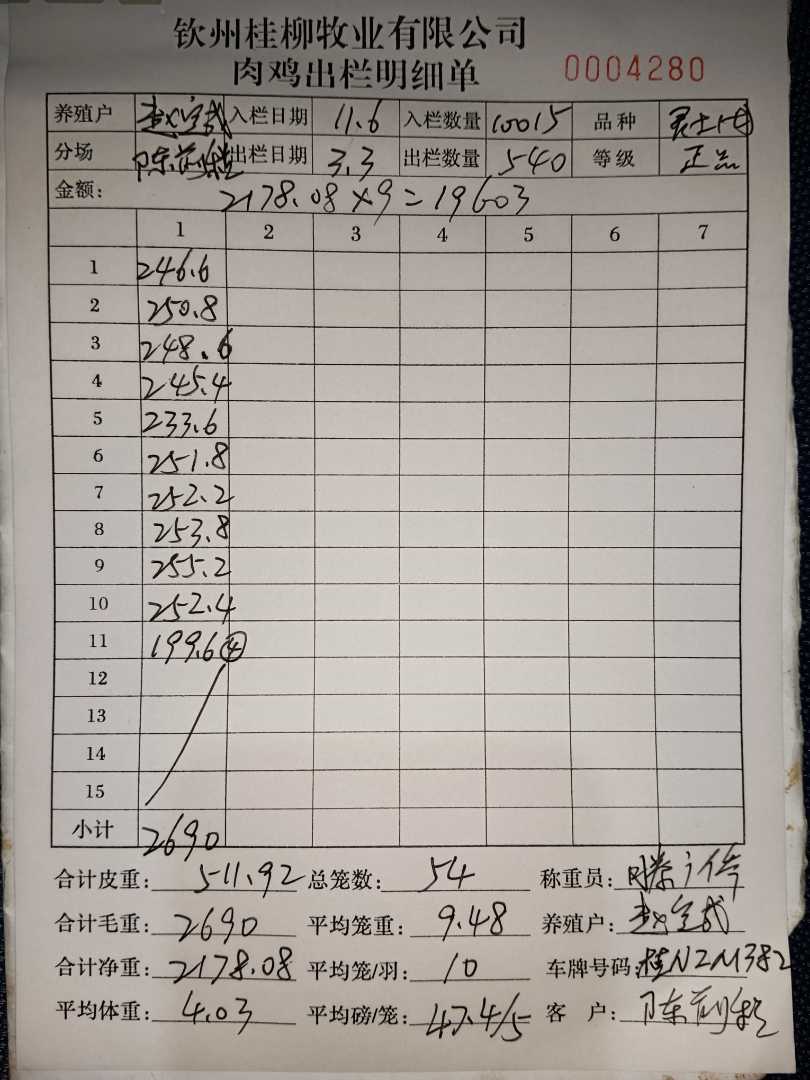 钦州桂柳牧业有限公司
肉鸡出栏明细单 0004280
养殖户 赵宝武 入栏日期 11.6 入栏数量 10015 品种
分场 出栏日期 3.3 出栏数量 540 等级 正品
金额: 2178.08×9=19603
1 2 3 4 5 6 7
1 246.6
2 250.8
3 248.6
4 245.4
5 233.6
6 251.8
7 252.2
8 253.8
9 255.2
10 252.4
11 199.6 ④
12
13
14
15
小计 2690
合计皮重: 511.92 总笼数: 54 称重员:
合计毛重: 2690 平均笼重: 9.48 养殖户: 赵宝武
合计净重: 2178.08 平均笼/羽: 10 车牌号码: 桂NZM382
平均体重: 4.03 平均磅/笼: 47.4/5 客 户: